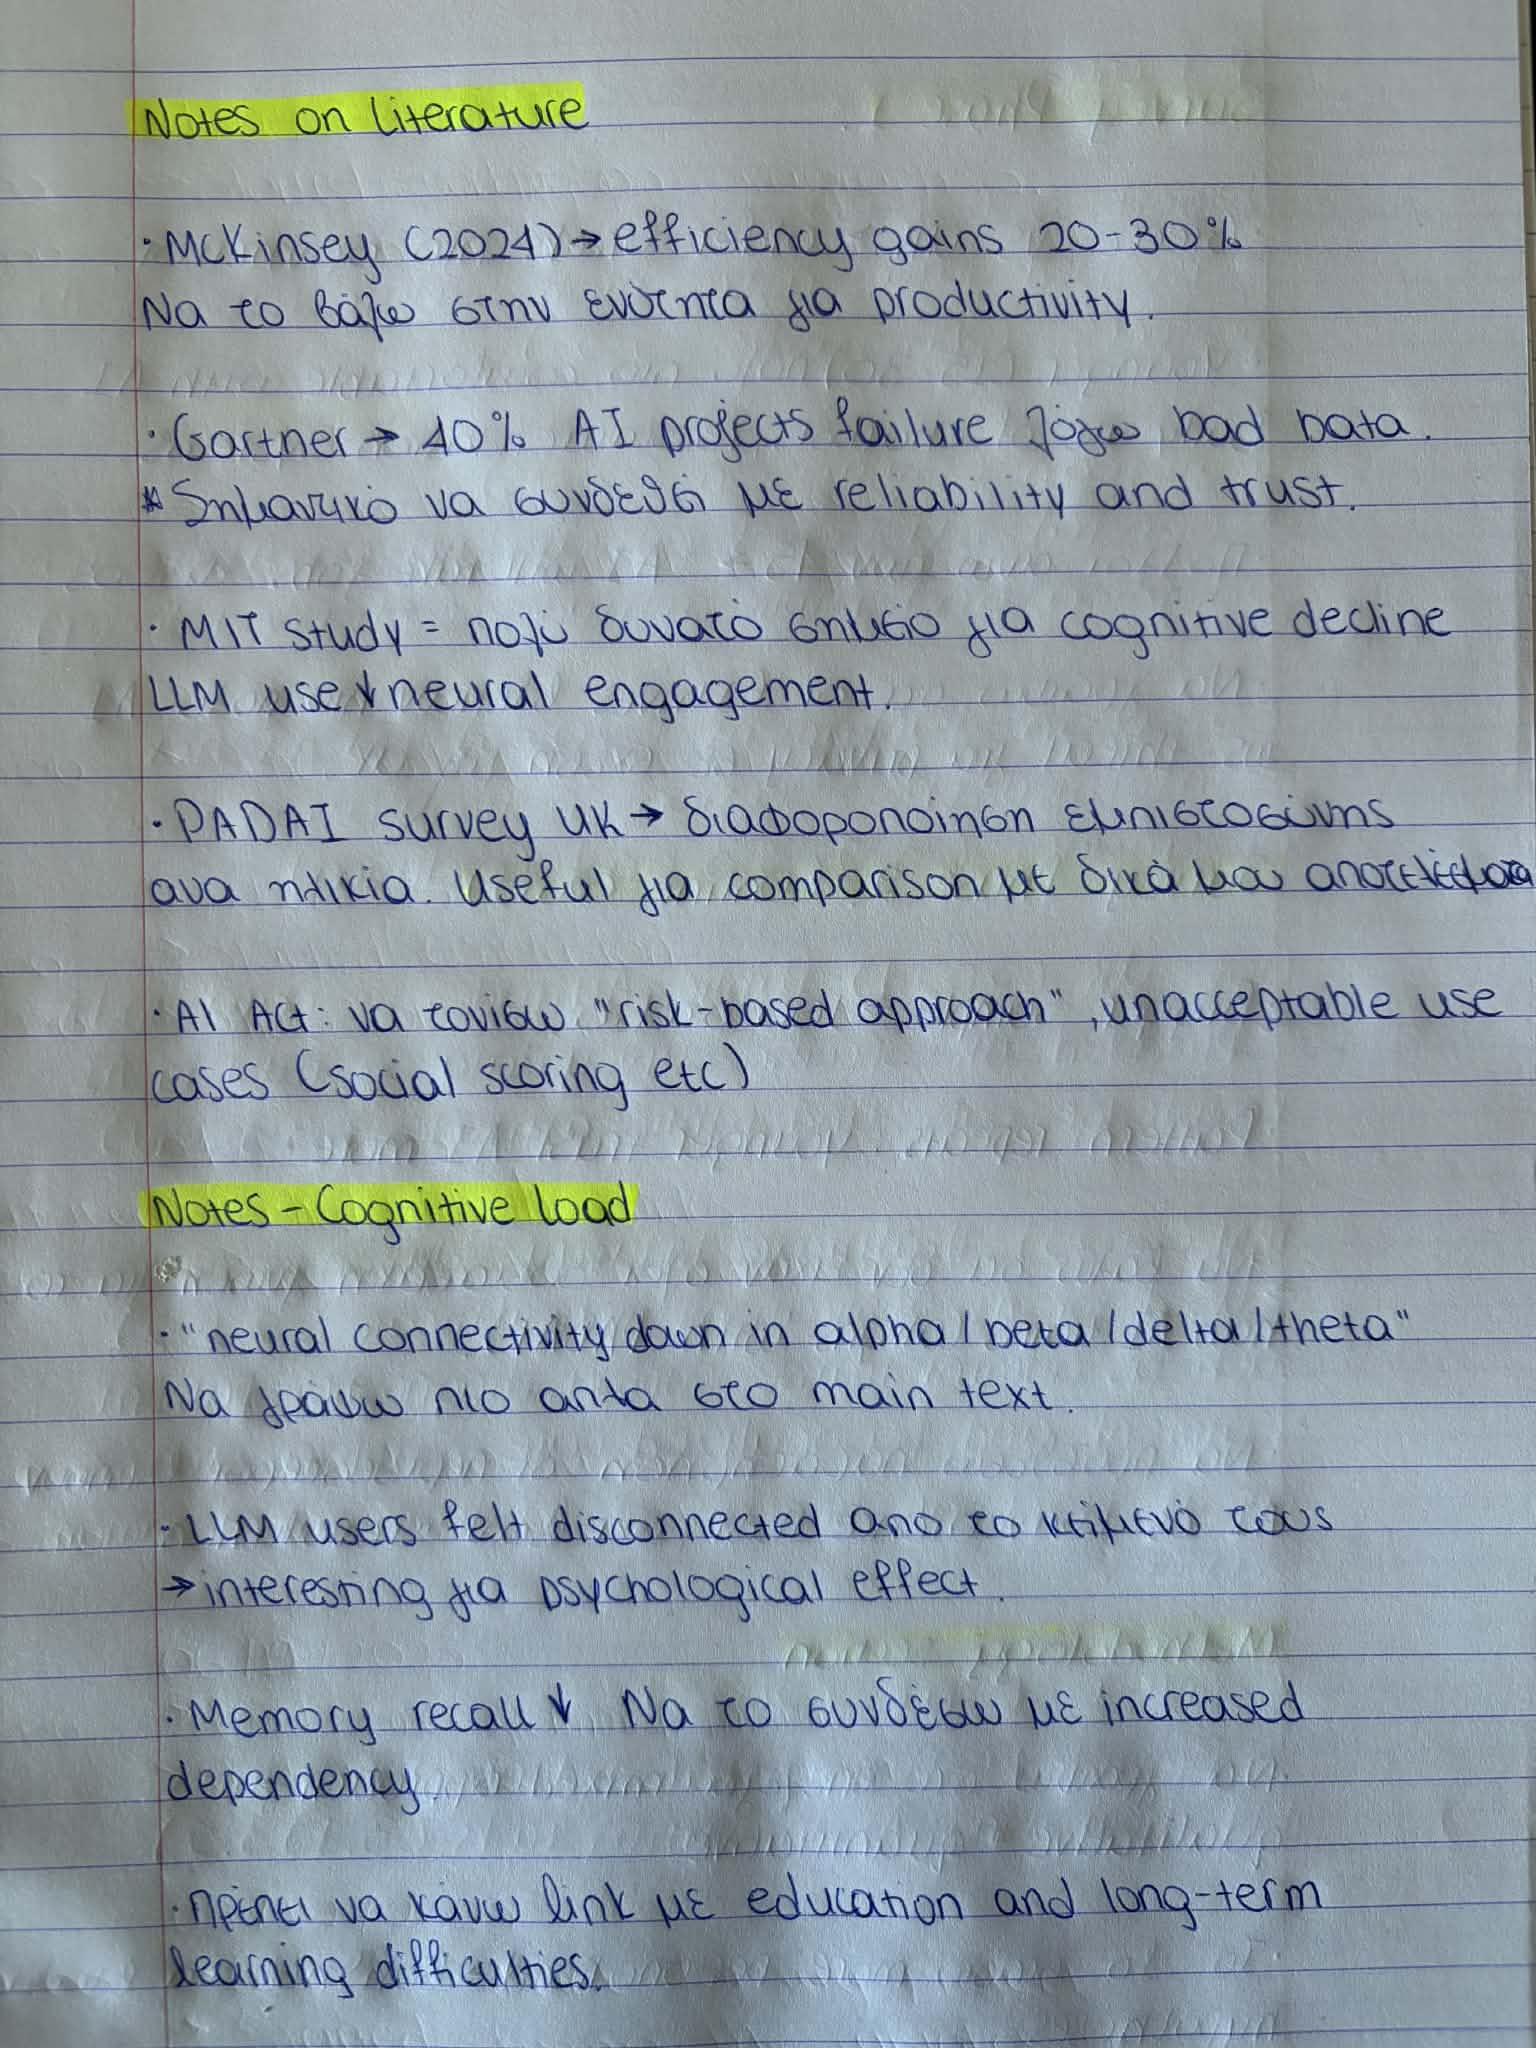 Notes on Literature
· McKinsey (2024) → efficiency gains 20-30%
Να το βάλω στην ενότητα για productivity.
· Gartner → 40% AI projects failure λόγω bad data.
* Σημαντικό να συνδεθεί με reliability and trust.
· MIT study = πολύ δυνατό σημείο για cognitive decline
LLM use ↓ neural engagement.
· DADAI survey UK → διαφοροποίηση εμπιστοσύνης
ανα ηλικία. Useful για comparison με δικά μου αποτελέσματα
· AI Act: να τονίσω "risk-based approach", unacceptable use
cases (social scoring etc)
Notes - Cognitive load
· "neural connectivity down in alpha/beta/delta/theta"
Να γράψω πιο απλα στο main text.
· LLM users felt disconnected απο το κείμενό τους
→ interesting για psychological effect.
· Memory recall ↓ Να το συνδέσω με increased
dependency.
· πρέπει να κάνω link με education and long-term
learning difficulties.